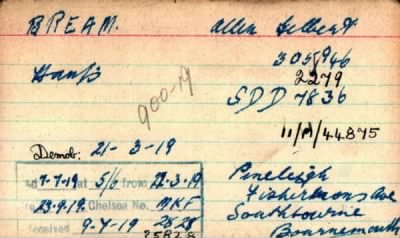 BREAM. Allen Gilbert
305946
Hants 2279
900-M SDD 7836
11/M/44875
Demob: 21-3-19
7-7-19 at 5/6 from 22-3-19
23.9.19. Chelsea No. MKF
Received 9-7-19 2525
25828
Pineleigh
Fishermans Ave
Southbourne
Bournemouth